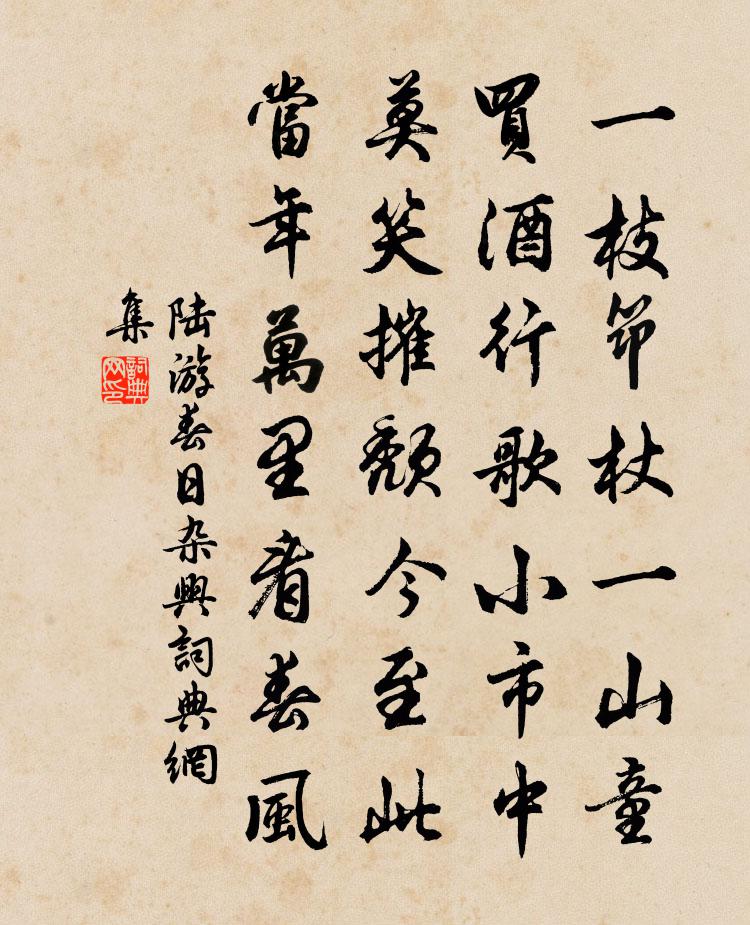 一枝筇杖一山童
買酒行歌小市中
莫笑摧頹今至此
當年萬里看春風
陆游春日杂興詞典網
集
詞典网印